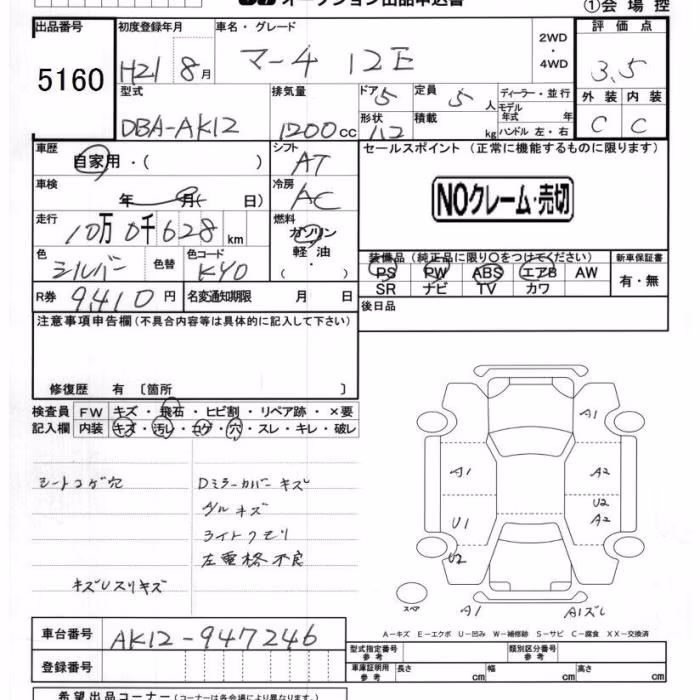 オークション出品申込書
①会場控
出品番号
5160
初度登録年月
H21 8月
車名・グレード
マーチ 12E
2WD
・
4WD
評価点
3.5
型式
DBA-AK12
排気量
1200cc
ドア 5
形状
定員 5人
積載 kg
ディーラー・並行
モデル年式 年
ハンドル 左・右
外装 内装
C C
車歴
自家用・( )
シフト
AT
セールスポイント (正常に機能するものに限ります)
NOクレーム・売切
車検
年 月( 日)
冷房
AC
走行
10万0千628km
燃料
ガソリン
軽油
・( )
色
シルバー
色替
色コード
KY0
装備品 (純正品に限り○をつけてください)
新車保証書
PS PW ABS エアB AW
有・無
SR ナビ TV カワ
R券 9,410円
名変通知期限 月 日
後日品
注意事項申告欄(不具合内容等は具体的に記入して下さい)
修復歴 有 〔箇所 〕
検査員 FW キズ・飛石・ヒビ割・リペア跡・×要
記入欄 内装 キズ・汚レ・コゲ・穴・スレ・キレ・破レ
シートコゲ穴
Dミラーカバーキズ
ライトクモリ
キズUスリキズ
A1
A1
A2
U2
A2
U1
U2
スペア
A1
A1ズレ
A-キズ E-エクボ U-凹み W-補修跡 S-サビ C-腐食 XX-交換済
車台番号 AK12-947246
登録番号
型式指定番号
参考
類別区分番号
参考
車庫証明用
参考
長さ cm 幅 cm 高さ cm
希望出品コーナー (コーナーは各会場により異なります。)